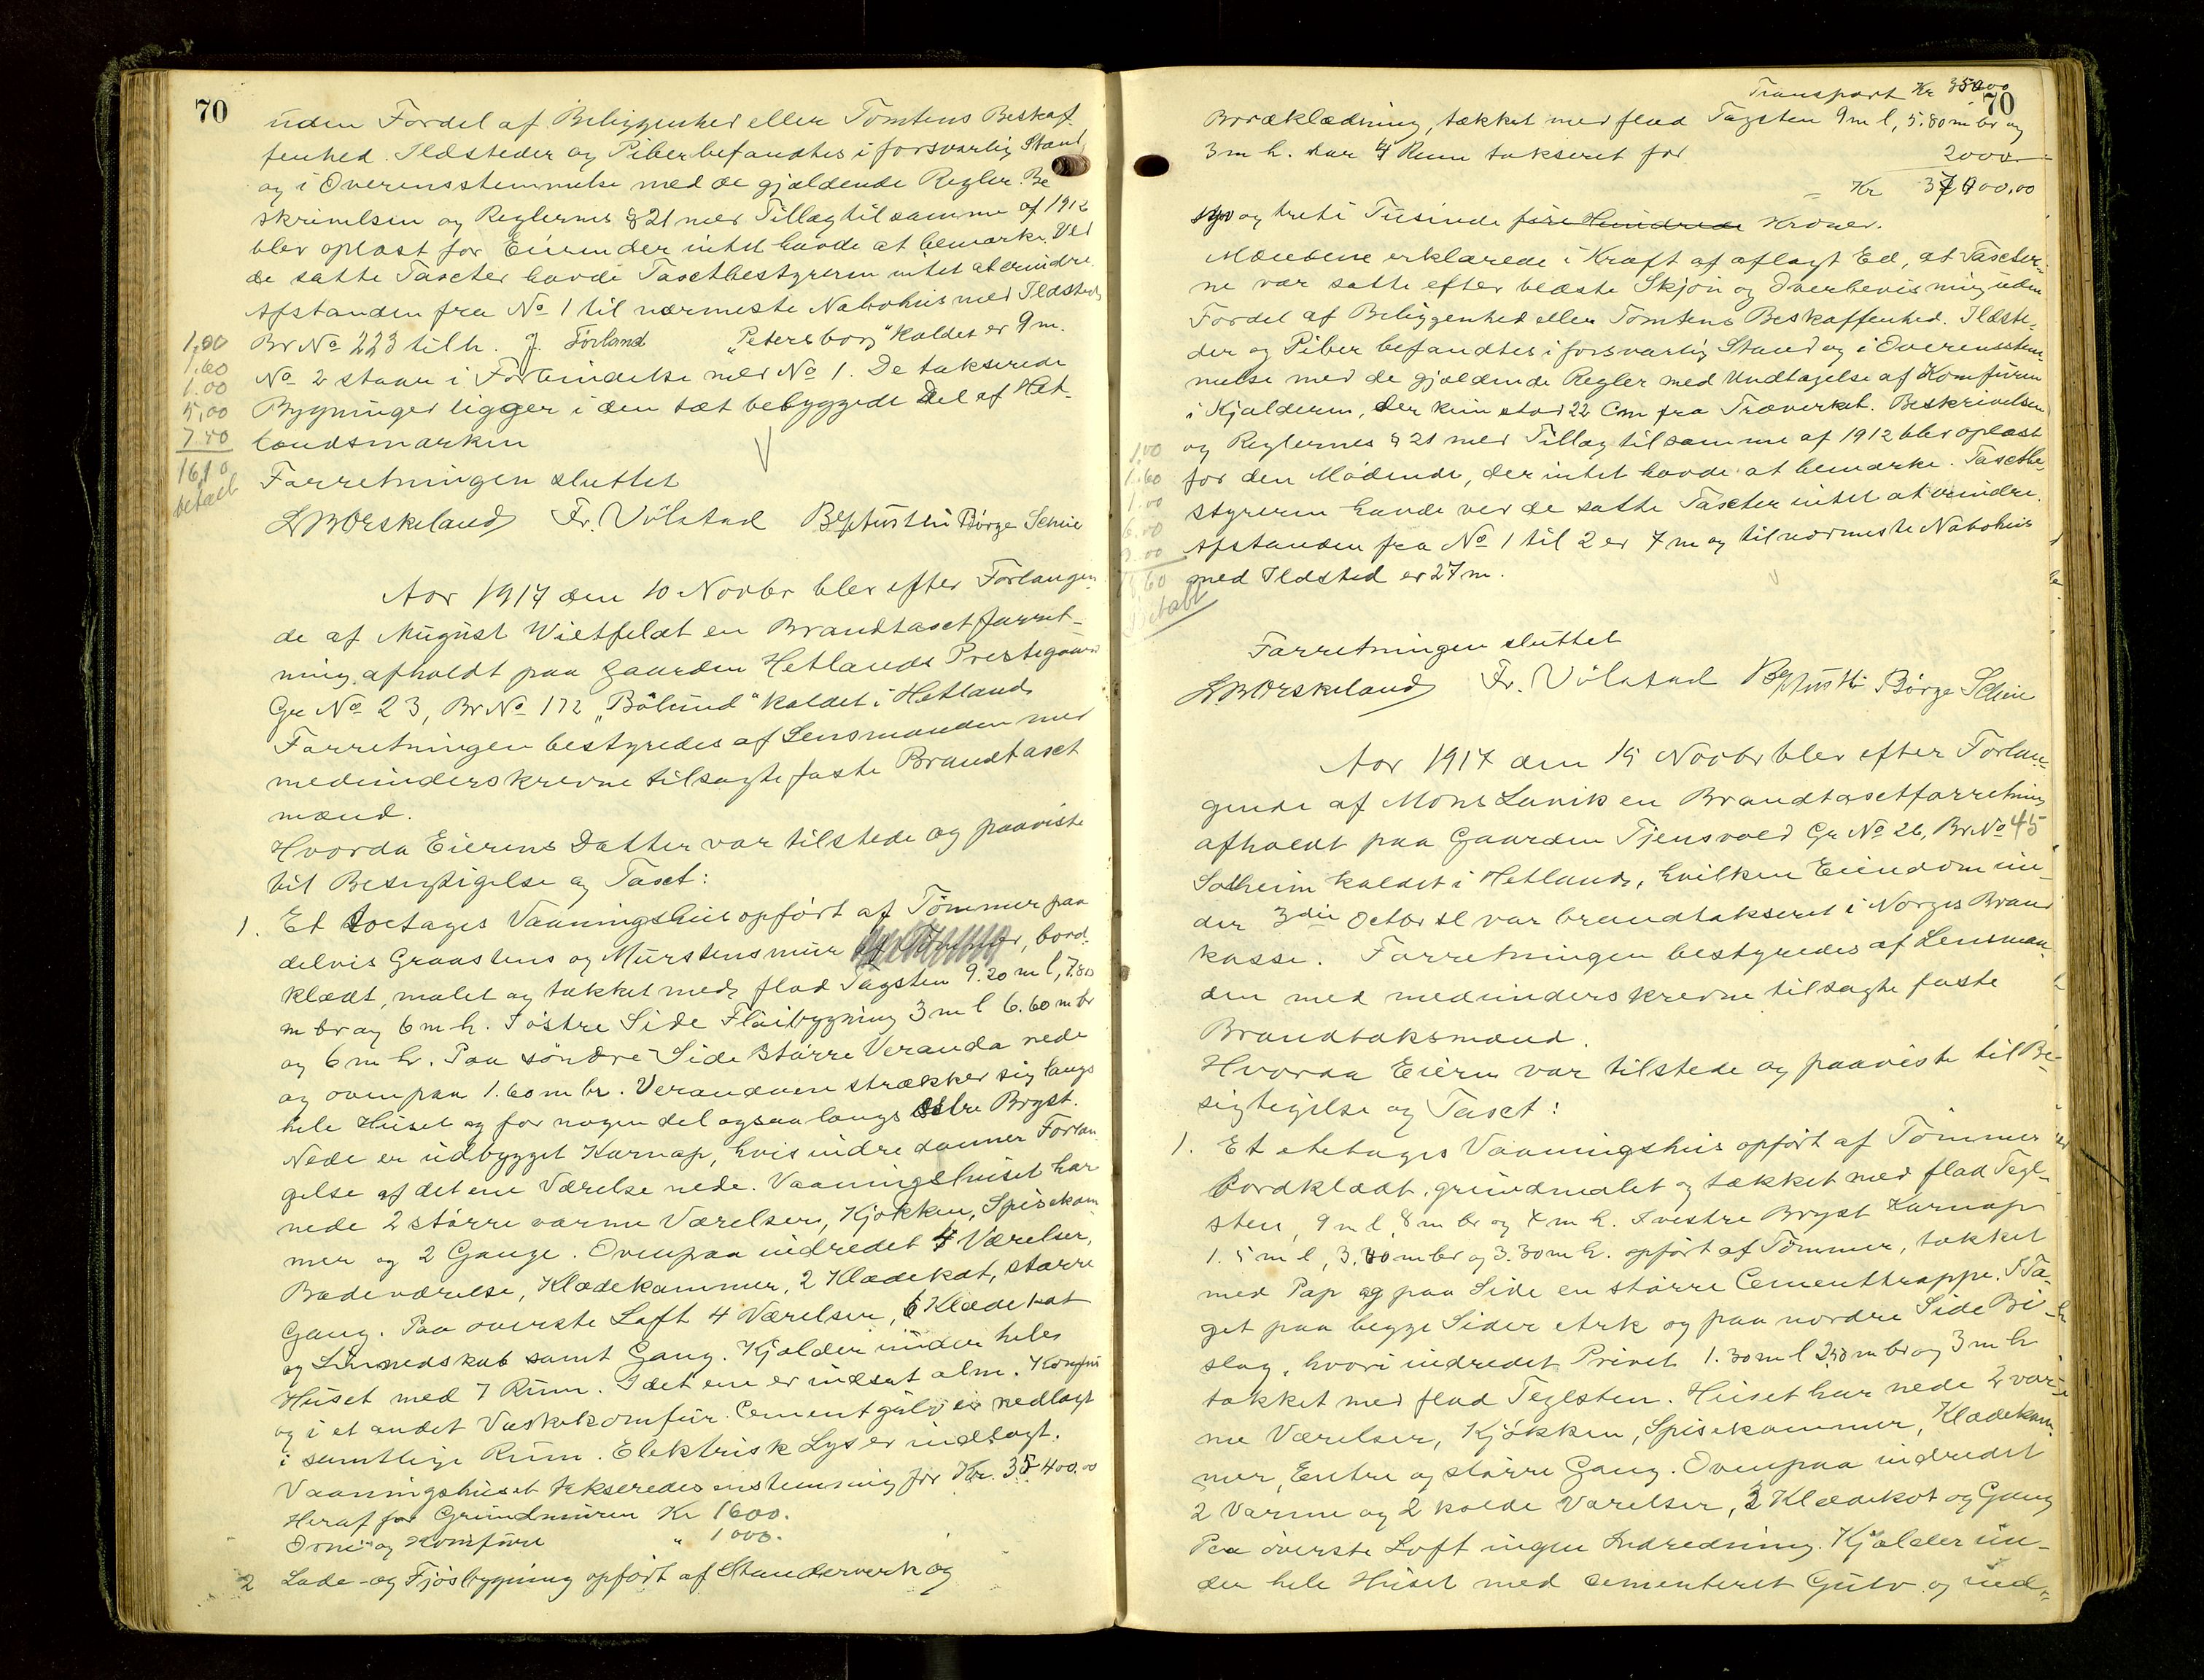 70
uden Fordel af Beliggenhed eller Tomtens Beskaf-
fenhed. Ildsteder og Piber befandtes i forsvarlig Stand
og i Overensstemmelse med de gjældende Regler. Be
skrivelsen og Reglernes § 21 med Tillæg til samme af 1912
blev oplæst for Eieren der intet havde at bemærke. Ved
de satte Taxter havde Taxtbestyreren intet at erindre.
Afstanden fra No 1 til nærmeste Nabohus med Ildsted
Br No 223 tilh. J. Torland "Petersborg" kaldet er 9 m.
No 2 staar i Forbindelse med No 1. De takserede
Bygninger ligger i den tæt bebyggede Del af Het-
landsmarken
1,00
1.60
1.00
5,00
7.50
16,10
betalt
Forretningen sluttet
Fr. Völstad Børge Schie
Aar 1917 den 10 Novbr blev efter Forlangen-
de af August Wietfeldt en Brandtaxtforret-
ning afholdt paa Gaarden Hetlands Prestegaard
Gr No 23, Br No 172 "Bölund" kaldet i Hetland
Forretningen bestyredes af Lensmanden med
medunderskrevne tilsagte faste Brandtaxt
mænd.
Hvorda Eierens Datter var tilstede og paaviste
til Besigtigelse og Taxt:
1. Et toetages Vaaningshus opført af Tömmer paa
delvis Graastens og Murstensmur , bord-
klædt, malet og tækket med flad Tagsten 9.20 m l, 7.80
m br og 6 m h. I östre Side Flöibygning 3 m l 6.60 m br
og 6 m h. Paa söndre Side större Veranda nede
og ovenpaa 1.60 m br. Verandaen strækker sig langs
hele Huset og for nogen del ogsaa langs östre Bryst.
Nede er udbygget Karnap, hvis indre danner Forlæn-
gelse af det ene Værelse nede. Vaaningshuset har
nede 2 større varme Værelser, Kjøkken, Spisekam
mer og 2 Gange. Ovenpaa indredet 4 Værelser,
Badeværelse, Klædekammer, 2 Klædekot, større
Gang. Paa øverste Loft 4 Værelser, 6 Klædekot
og Linnedskab samt Gang. Kjælder under hele
Huset med 7 Rum. I det ene er indsat alm. Komfur
og i et andet Vaskekomfur. Cementgulv er nedlagt
i samtlige Rum. Elektrisk Lys er indlagt.
Vaaningshuset takseredes enstemmig for Kr. 35400.00
Heraf for Grundmuren Kr 1600.
Ovne og Komfure " 1000.
2 Lade- og Fjösbygning opført af Standerverk og
Transport Kr 35000
70
Bordklædning, tækket med flad Tagsten 9 m l, 5.80 m br og
3 m h. har 4 Rum takseret for 2000
Kr 37000,00
syv og treti Tusinde fire Hundrede Kroner.
Mændene erklærede i Kraft af aflagt Ed, at Taxter-
ne var satte efter bedste Skjøn og Overbevisning uden
Fordel af Beliggenhed eller Tomtens Beskaffenhed. Ildste-
der og Piber befandtes i forsvarlig Stand og i Overensstem-
melse med de gjældende Regler med Undtagelse af Komfuren
i Kjælderen, der kun stod 22 Cm fra Træverket. Beskrivelsen
og Reglernes § 21 med Tillæg til samme af 1912 blev oplæst
for den Mødende, der intet havde at bemærke. Taxtbe
styreren havde ved de satte Taxter intet at erindre.
Afstanden fra No 1 til 2 er 7 m og til nærmeste Nabohus
med Ildsted er 27 m.
1,00
1.60
1.00
6.00
Betalt
Forretningen sluttet
Fr. Völstad Børge Schie
Aar 1917 den 15 Novbr blev efter Forlan-
gende af Mons Lunik en Brandtaxtforretning
afholdt paa Gaarden Tjensvold Gr No 26, Br No 45
Solheim kaldet i Hetland, hvilken Eiendom un-
der 3die Octbr sl var brandtakseret i Norges Brand
kasse. Forretningen bestyredes af Lensman-
den med medunderskrevne tilsagte faste
Brandtaksmænd.
Hvorda Eieren var tilstede og paaviste til Be-
sigtigelse og Taxt:
1. Et etetages Vaaningshus opført af Tömmer
bordklædt, grundmalet og tækket med flad Tegl-
sten, 9 m l, 8 m br og 4 m h. I vestre Bryst Karnap
1.5 m l, 3.40 m br og 3.30 m h. opført af Tömmer, tækket
med Pap og paa Side en større Cementtrappe. I Ta-
get paa begge Sider Ark og paa nordre Side Bi-
slag, hvori indredet Privet 1.30 m l 2.50 m br og 3 m h
tækket med flad Teglsten. Huset har nede 2 var-
me Værelser, Kjøkken, Spisekammer, Klædekam-
mer, Entre og større Gang. Ovenpaa indredet
2 varme og 2 kolde Værelser, 2 Klædekot og Gang
Paa øverste Loft ingen Indredning. Kjælder un-
der hele Huset med cementeret Gulv og ind-